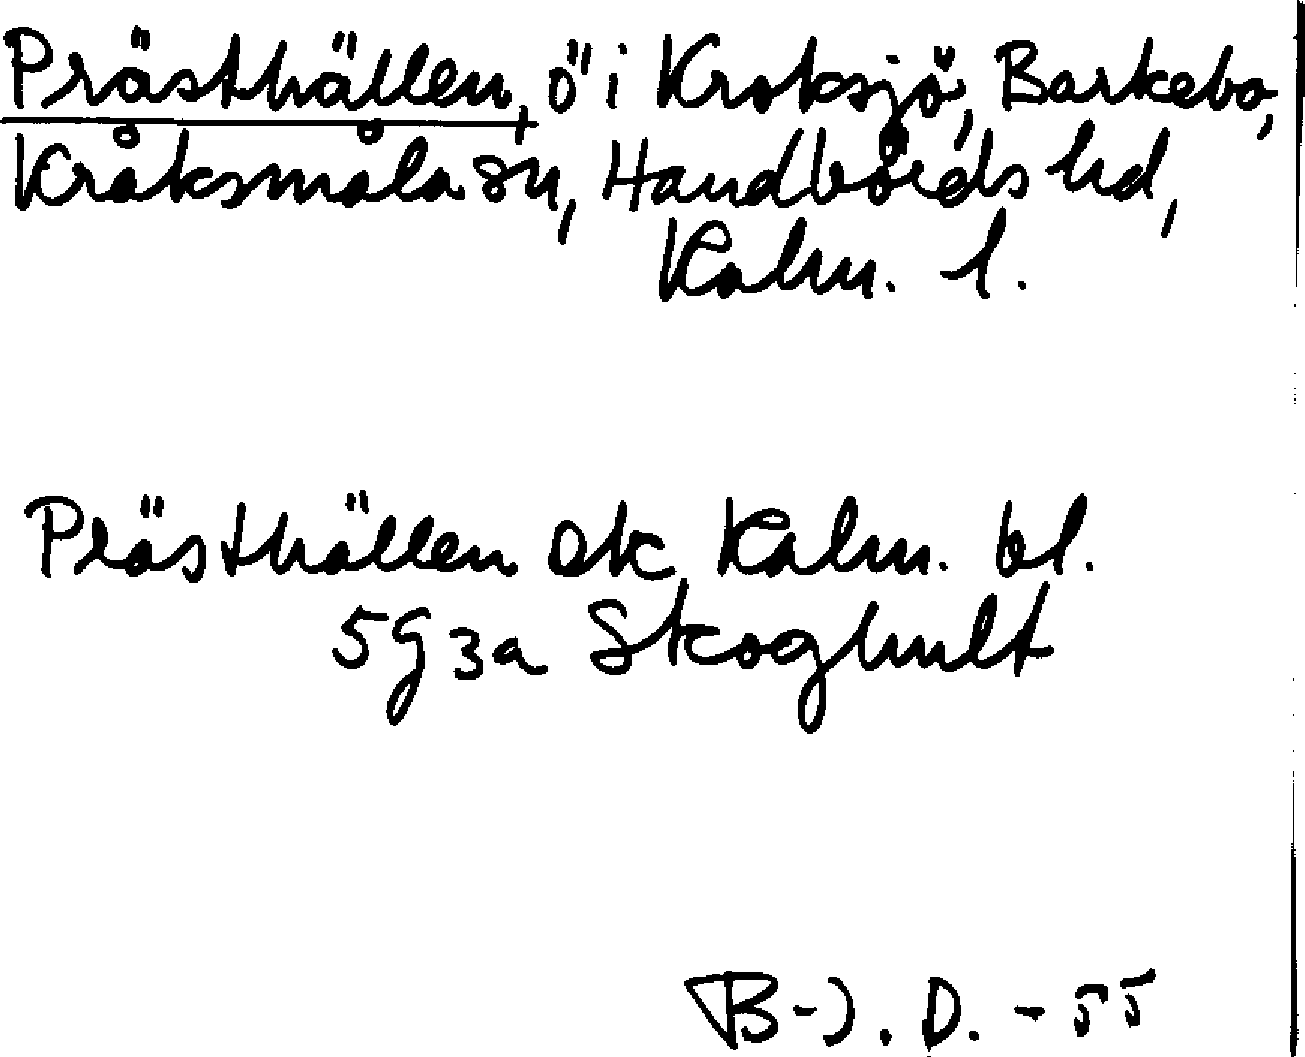 Prästhällen, ö i Kroksjö, Barkebo,
Kråksmåla sn, Handbörds hd,
Kalm. l.
Prästhällen Ek Kalm. bl.
5G3a Skoghult
B-J. D. - 55